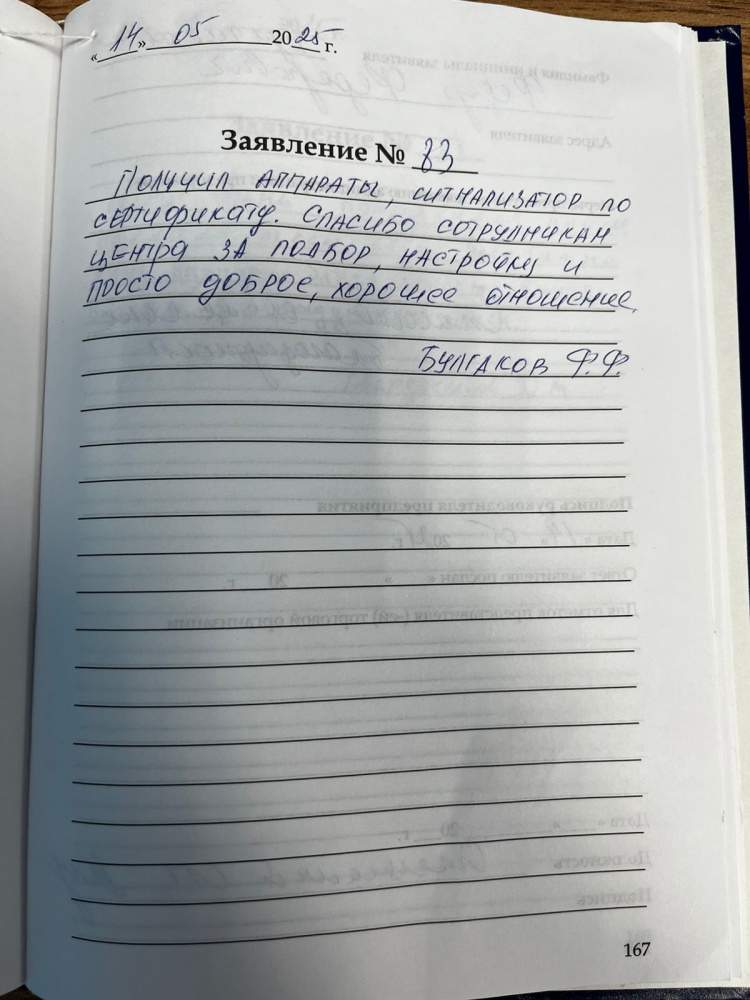 «14» 05 2025 г.
Заявление № 83
Получил аппараты, сигнализатор по
сертификату. Спасибо сотрудникам
центра за подбор, настройку и
просто доброе, хорошее отношение.
Булгаков Ф.Ф.
167